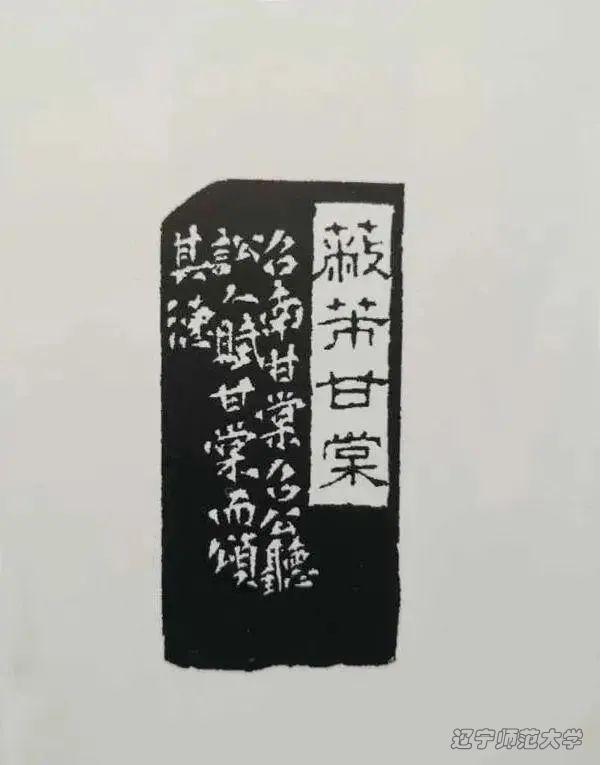 蔽芾甘棠
召南甘棠召公聽
訟人賦甘棠而頌
其德
辽宁师范大学